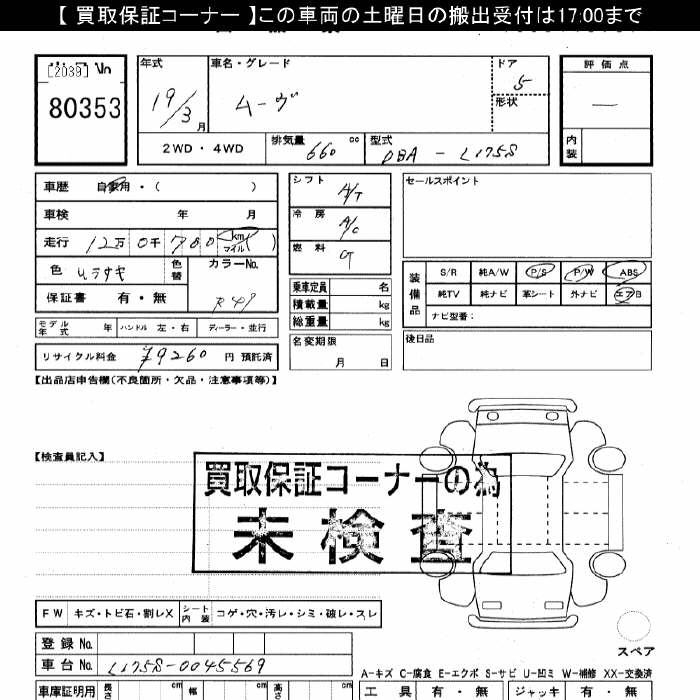 【 買取保証コーナー 】この車両の土曜日の搬出受付は17:00まで
[2039] No
80353
年式 車名・グレード ドア 評価点
19/3 月 ムーヴ 5 —
形状
内装
2WD・4WD 排気量 660 cc 型式 DBA - L175S
車歴 自家用・( )
車検 年 月
走行 12万 0千 780 km マイル ( )
色 ムラサキ 色替 カラーNo.
保証書 有・無 R49
シフト A/T
冷房 A/C
燃料 G
乗車定員 名
積載量 kg
総重量 kg
名変期限
月 日
セールスポイント
装備品 S/R 純A/W P/S P/W ABS
純TV 純ナビ 革シート 外ナビ エアB
ナビ型番:
後日品
モデル年式 年 ハンドル 左・右 ディーラー・並行
リサイクル料金 ¥9260 円 預託済
【出品店申告欄(不良箇所・欠品・注意事項等)】
【検査員記入】
買取保証コーナーの為
未検査
FW キズ・トビ石・割レX シート内装 コゲ・穴・汚レ・シミ・破レ・スレ
登録 No.
車台 No. L175S-0045569
スペア
A-キズ C-腐食 E-エクボ S-サビ U-凹ミ W-補修 XX-交換済
車庫証明用 長さ cm 幅 cm 高さ cm 工具 有・無 ジャッキ 有・無